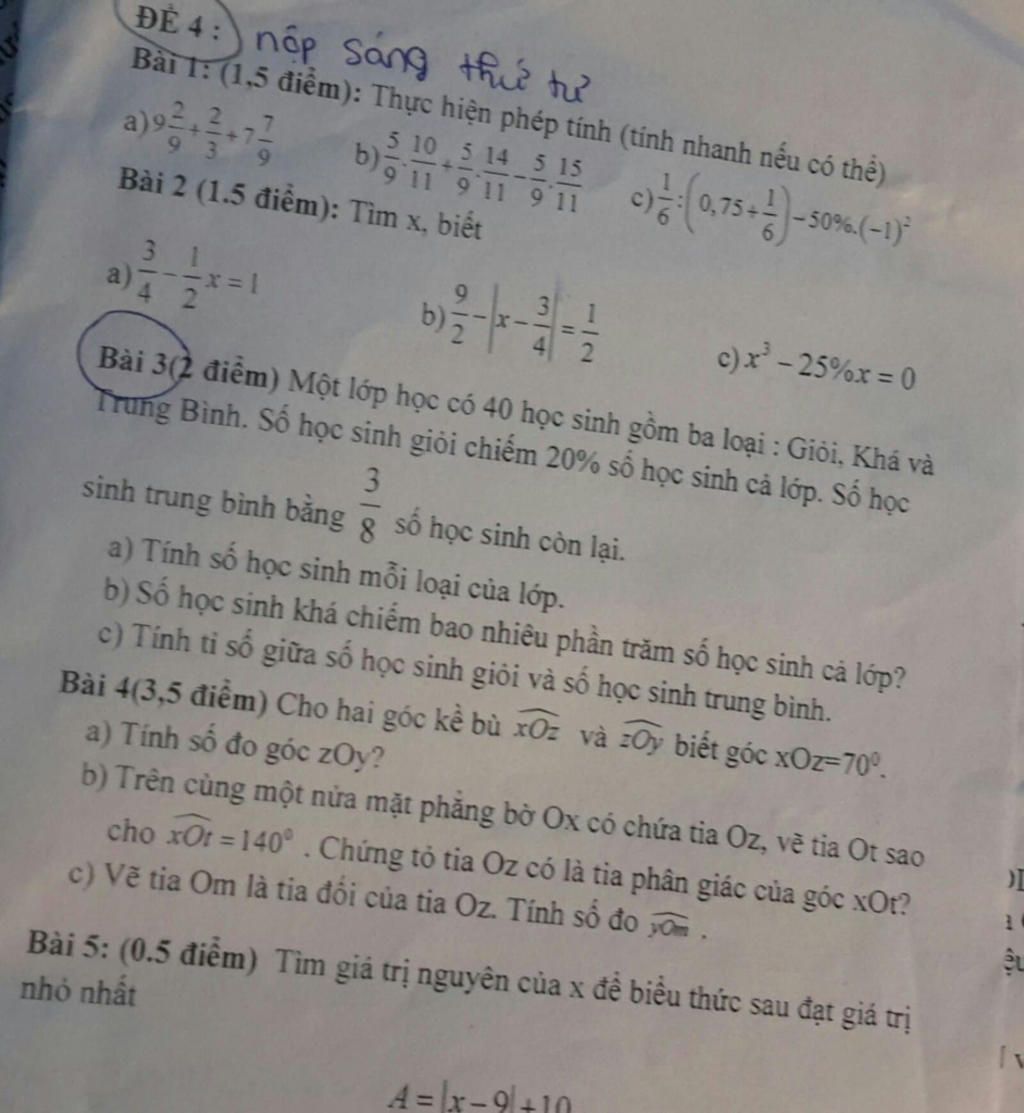 ĐỀ 4 : nộp sáng thứ tư
Bài 1: (1,5 điểm): Thực hiện phép tính (tính nhanh nếu có thể)
a) 9 2/9 + 2/3 + 7 7/9 b) 5/9 . 10/11 + 5/9 . 14/11 − 5/9 . 15/11 c) 1/6 : (0,75 + 1/6) − 50%.(−1)²
Bài 2 (1.5 điểm): Tìm x, biết
a) 3/4 − 1/2 x = 1 b) 9/2 − |x − 3/4| = 1/2 c) x³ − 25%x = 0
Bài 3(2 điểm) Một lớp học có 40 học sinh gồm ba loại : Giỏi, Khá và
Trung Bình. Số học sinh giỏi chiếm 20% số học sinh cả lớp. Số học
sinh trung bình bằng 3/8 số học sinh còn lại.
a) Tính số học sinh mỗi loại của lớp.
b) Số học sinh khá chiếm bao nhiêu phần trăm số học sinh cả lớp?
c) Tính tỉ số giữa số học sinh giỏi và số học sinh trung bình.
Bài 4(3,5 điểm) Cho hai góc kề bù xOz và zOy biết góc xOz=70⁰.
a) Tính số đo góc zOy?
b) Trên cùng một nửa mặt phẳng bờ Ox có chứa tia Oz, vẽ tia Ot sao
cho xOt = 140⁰ . Chứng tỏ tia Oz có là tia phân giác của góc xOt?
c) Vẽ tia Om là tia đối của tia Oz. Tính số đo yOm .
Bài 5: (0.5 điểm) Tìm giá trị nguyên của x để biểu thức sau đạt giá trị
nhỏ nhất
A = |x − 9| + 10